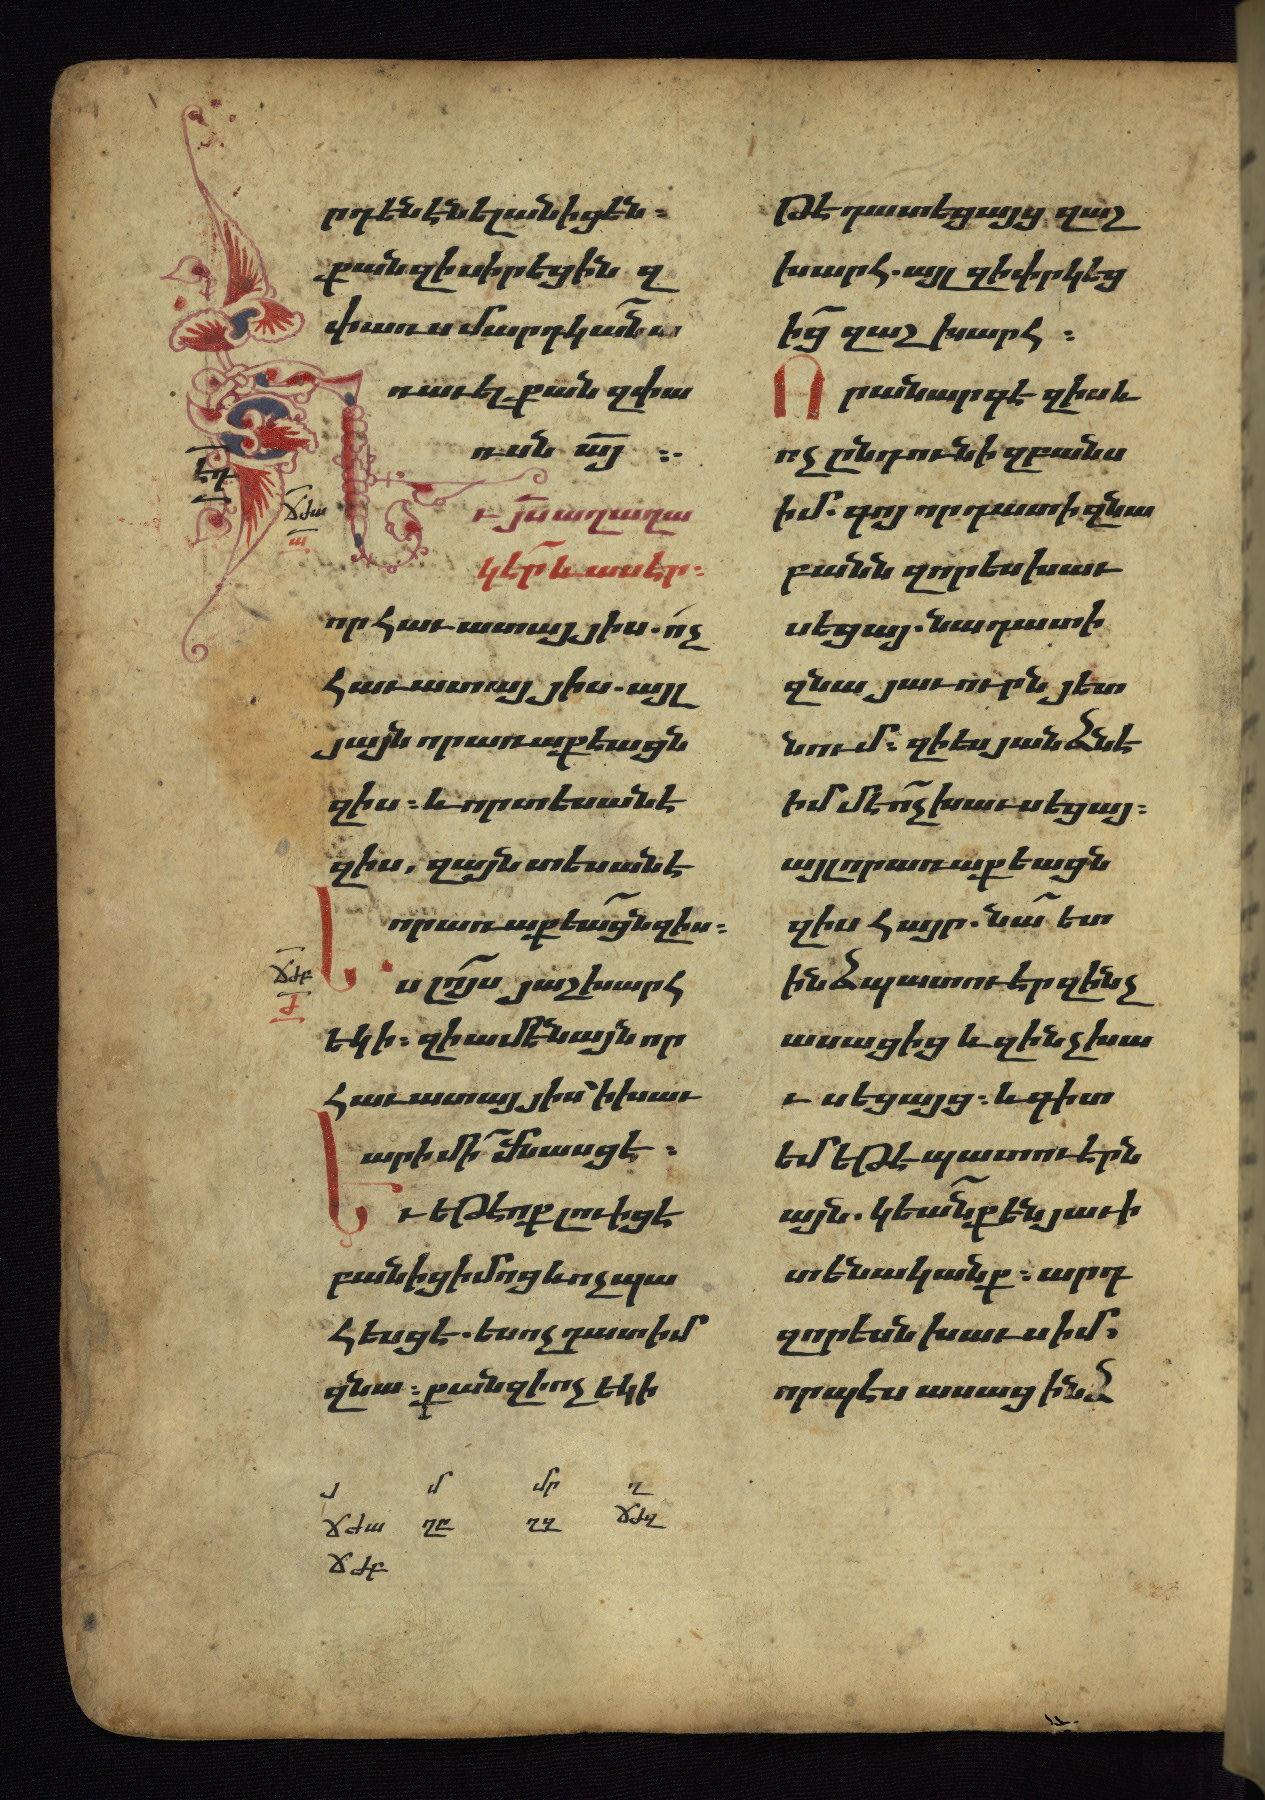 րդէնէնելանիցեն։
քանզի սիրեցին զ
փառս մարդկան ա
ռաւել քան զփա
ռսն այ ։
ւ յս աղաղա
կէր և ասէր։
որ հաւատայ յիս. ոչ
հաւատայ յիս. այլ
յայն որ առաքեացն
զիս։ և որ տեսանէ
զիս, զայն տեսանէ
որ առաքեացն զիս։
ս լոյս յաշխարհ
եկի։ զի ամենայն որ
հաւատայ յիս՝ ի խաւ
արի մի մնասցէ։
Եւ եթէ ոք լուիցէ
բանից իմոց և ոչ պա
հեսցէ. ես ոչ դատիմ
զնա։ քանզի ոչ եկի
թէ դատեցայց զաշ
խարհ. այլ զի փրկեց
ից զաշխարհ։
Ո րանարգէ զիս և
ոչ ընդունի զբանս
իմ. գոյ որ դատի զնա
բանն զոր ես խաւ
սեցայ. նա դատի
զնա յաւուրն յետ
նում։ զի ես յանձնէ
իմմէ ոչ խաւսեցայ։
այլ որ առաքեացն
զիս հայր. նա ետ
ինձ պատուէր զինչ
ասացից և զինչ խա
ւսեցայց։ և գիտ
եմ եթէ պատուէրն
այն. կեանք են յաւի
տենականք։ արդ
զոր ես ն խաւսիմ.
որպէս ասաց ինձ
էդ
ճժա
ա
ճժբ
ժ
յ մ մր ղ
ճժա ղը ղզ ճժզ
ճժբ